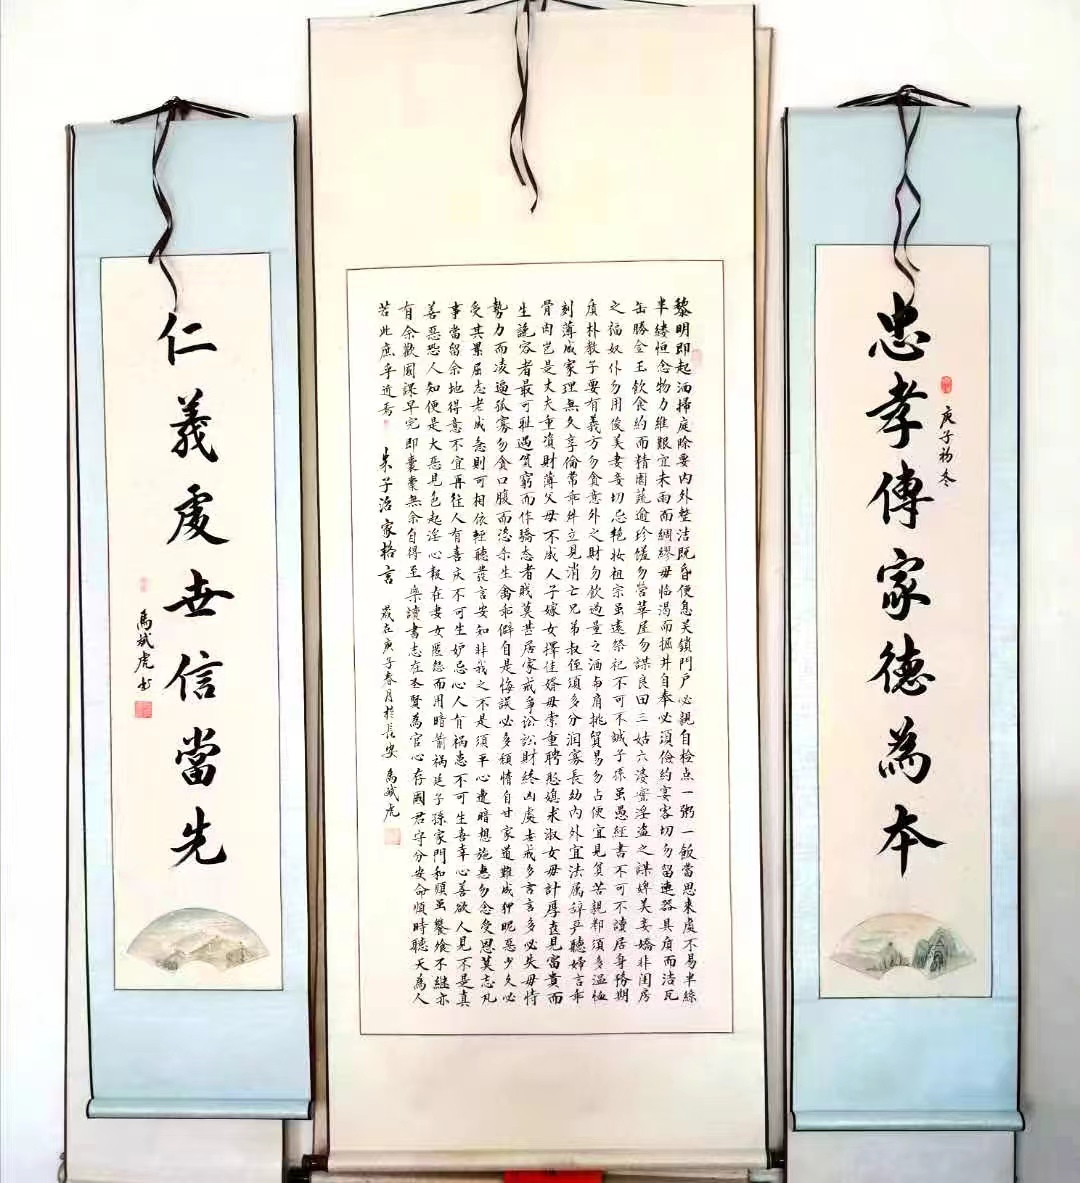 忠孝傳家德為本
庚子初冬
黎明即起洒掃庭除要內外整洁既昏便息关鎖門戶必親自检点一粥一飯當思来處不易半絲
半缕恒念物力維艱宜未雨而綢繆毋临渴而掘井自奉必須儉約宴客切勿留連器具質而洁瓦
缶勝金玉飲食約而精園蔬逾珍馐勿营華屋勿謀良田三姑六婆寔淫盗之謀婢美妾嬌非闺房
之福奴仆勿用俊美妻妾切忌艳妆祖宗虽遠祭祀不可不誠子孫虽愚經書不可不讀居身務期
質朴教子要有義方勿贪意外之財勿飲過量之酒与肩挑貿易勿占便宜見貧苦親鄰須多温恤
刻薄成家理無久享倫常乖舛立見消亡兄弟叔侄須多分润寡長幼內外宜法属辞严聽婦言乖
骨肉岂是丈夫重資財薄父母不成人子嫁女擇佳婿毋索重聘娶媳求淑女毋計厚奁見富貴而
生谗容者最可耻遇貧窮而作骄态者贱莫甚居家戒爭讼讼財終凶處世戒多言言多必失毋恃
勢力而凌逼孤寡勿贪口腹而恣杀生禽乖僻自是悔误必多颓惰自甘家道難成狎昵恶少久必
受其累屈志老成急則可相依輕聽發言安知非我之不是須平心遭暗想施惠勿念受恩莫忘凡
事當留余地得意不宜再往人有喜庆不可生妒忌心人有祸患不可生喜幸心善欲人見不是真
善恶恐人知便是大恶見色起淫心報在妻女匿怨而用暗箭祸延子孫家門和順虽饔飧不继亦
有余歡國課早完即囊橐無余自得至樂讀書志在圣賢為官心存國君守分安命順時聽天為人
若此庶乎近焉 朱子治家格言 歲在庚子春月於長安 馮斌虎
仁義處世信當先
馮斌虎书